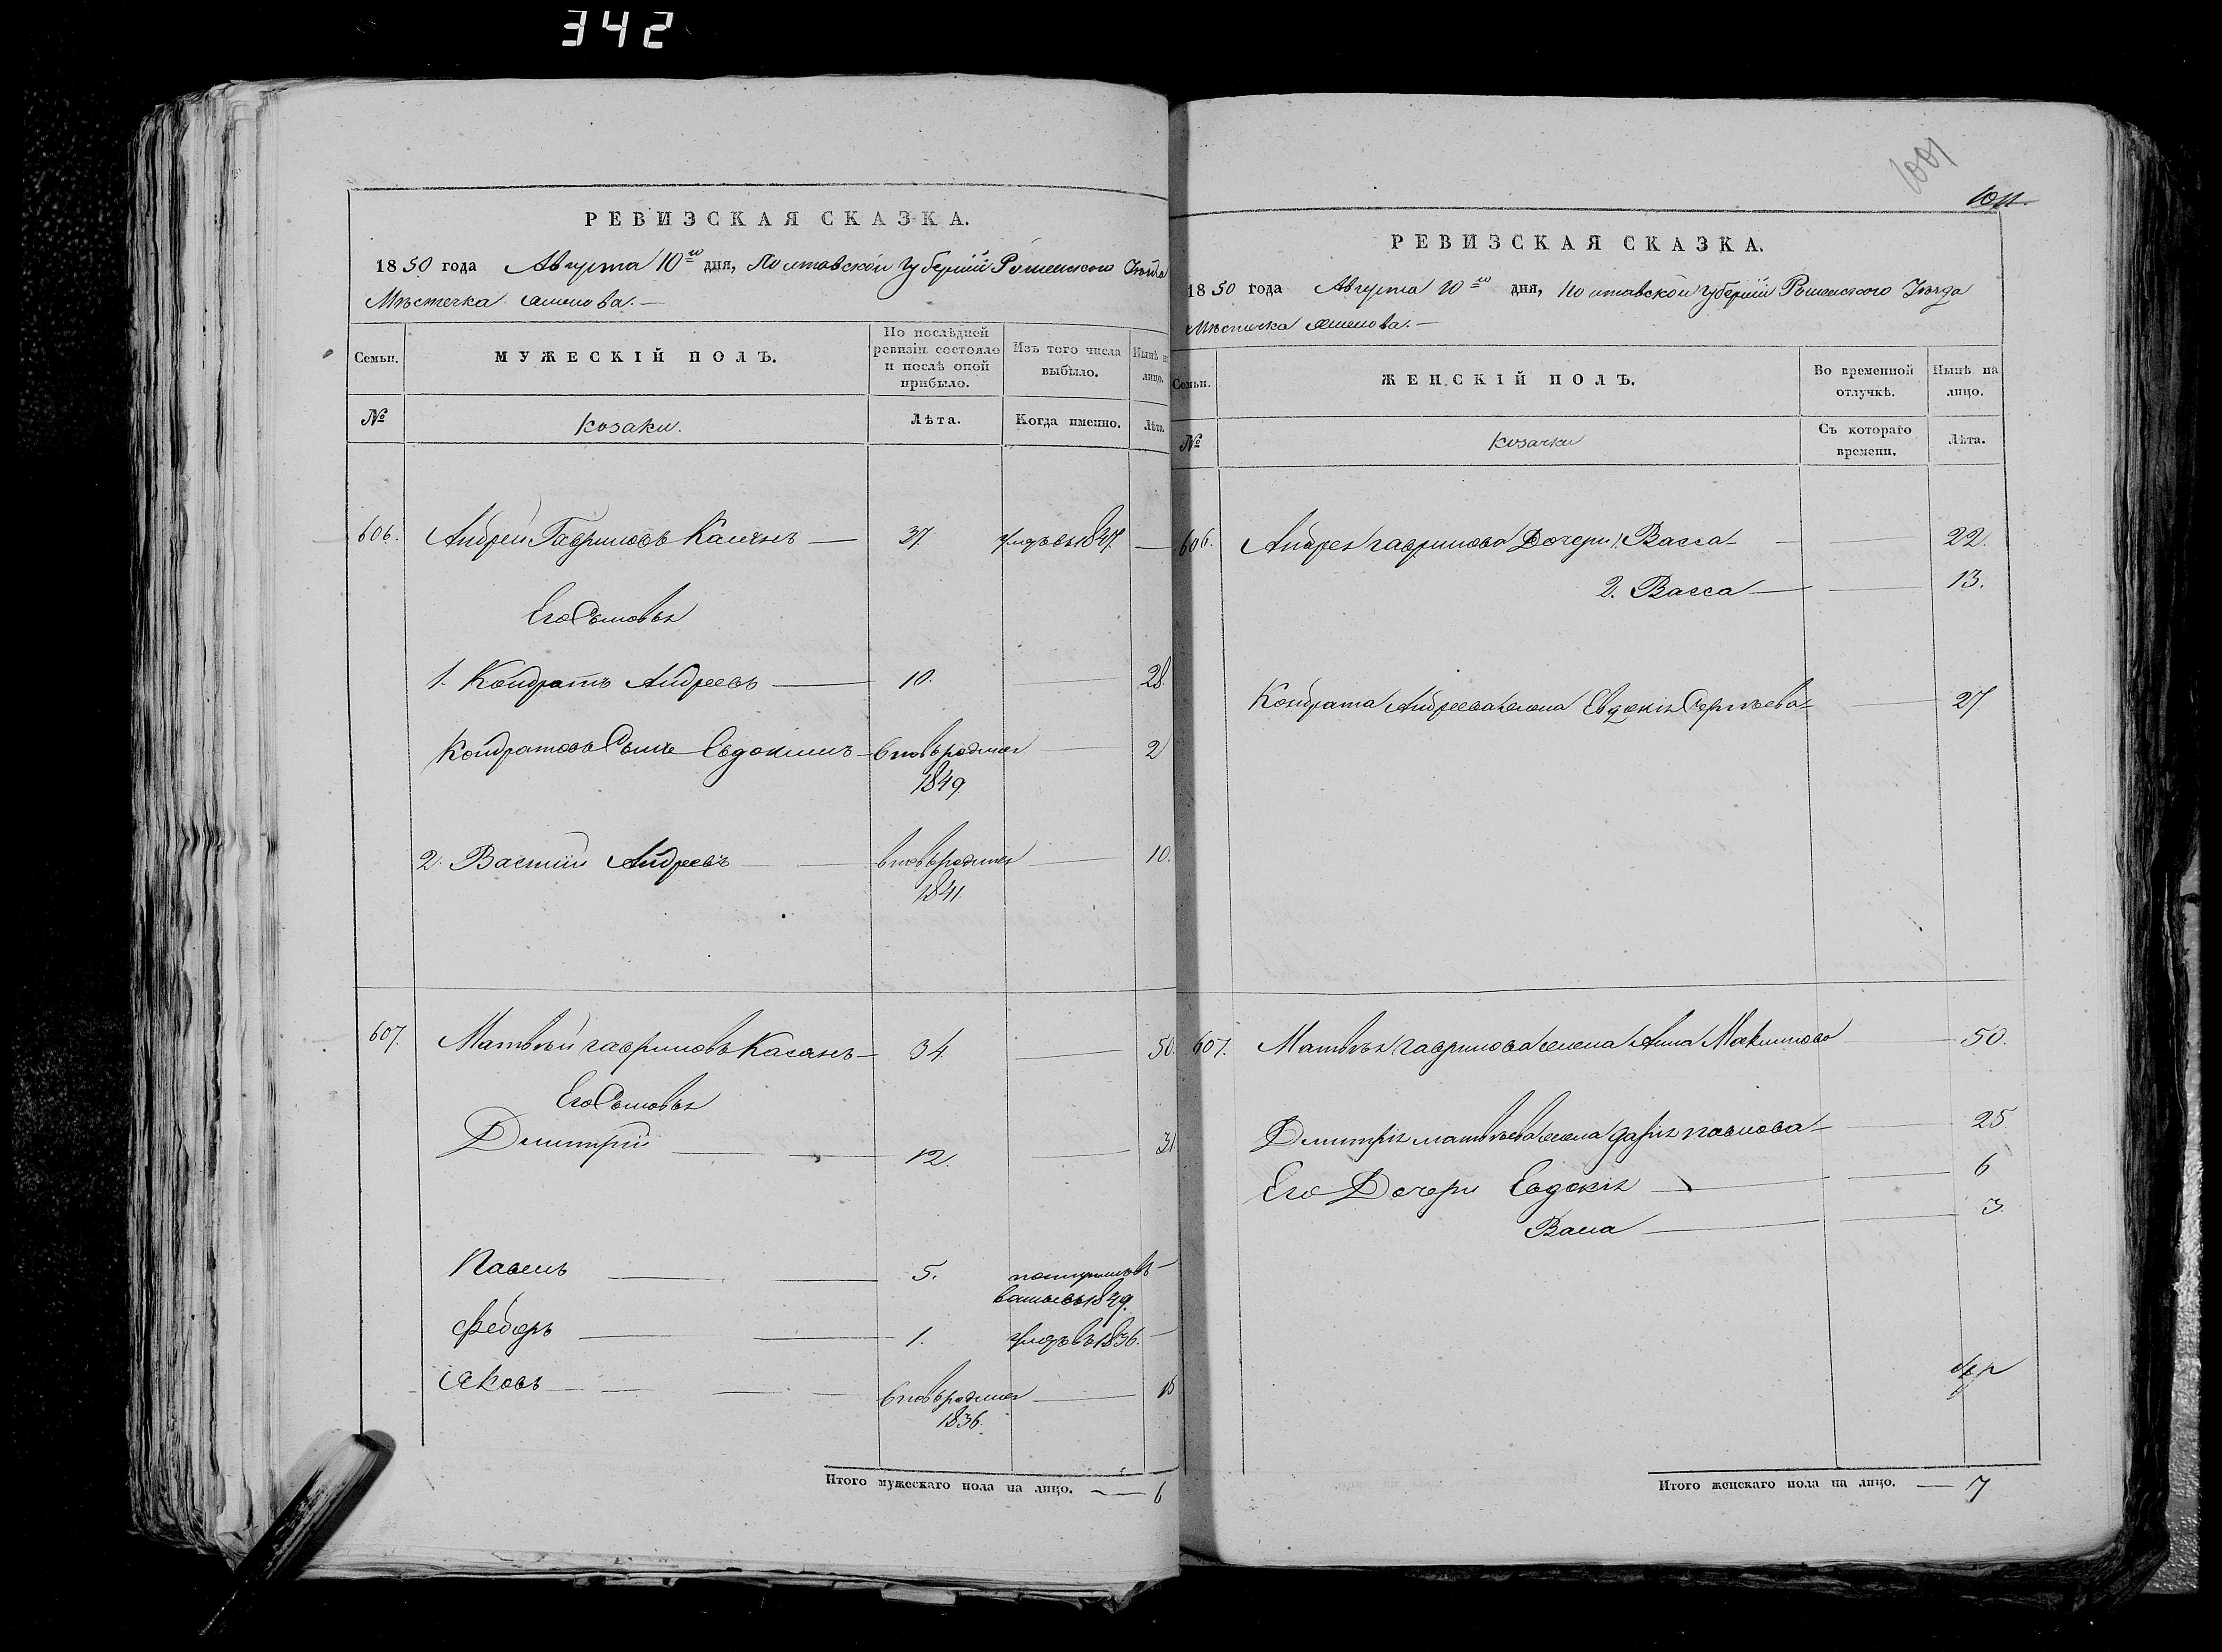 342
РЕВИЗСКАЯ СКАЗКА.
1850 года Августа 10го дня, Полтавской губерніи Роменского Уезда
Местечка
Семьи.
МУЖЕСКІЙ ПОЛЪ.
По послѣдней ревизіи состояло и послѣ оной прибыло.
Изъ того числа выбыло.
Нынѣ на лицо.
№
козаки.
Лѣта.
Когда именно.
Лѣта.
606. Андрей Гавриловъ Касянъ — 37. 1847. —
Его Сыновья
1. Кондратъ Андреевъ — 10. — 28.
Кондратовъ Сынъ Евдокимъ — вновьрожден 1849. — 2
2. Андреевъ — вновьрожден 1841. — 10.
607. Матвѣй гавриловъ Касянъ — 34. — 50.
Его Сыновья
Дмитрій — 12. — 31
Павелъ — 5. 1849. —
Федоръ — 1. 1836. —
Яковъ — вновьрожден 1836. —
Итого мужескаго пола на лицо. — 6
1001
РЕВИЗСКАЯ СКАЗКА.
1850 года Августа 10го дня, Полтавской губерніи Роменского Уезда
Местечка
Семьи.
ЖЕНСКІЙ ПОЛЪ.
Во временной отлучкѣ.
Нынѣ на лицо.
№
козачки
Съ котораго времени.
Лѣта.
606. Андрея гаврилова Дочери 1. Васса — 22.
2. Васса — 13.
Кондрата Андреева жена Евдокія Сергѣева — 27
607. Матвѣя гаврилова жена Анна Максимова — 50.
Дмитрія матвѣева жена дарія павлова — 25
Его Дочери Евдокія — 6
Васса — 3.
Итого женскаго пола на лицо. — 7